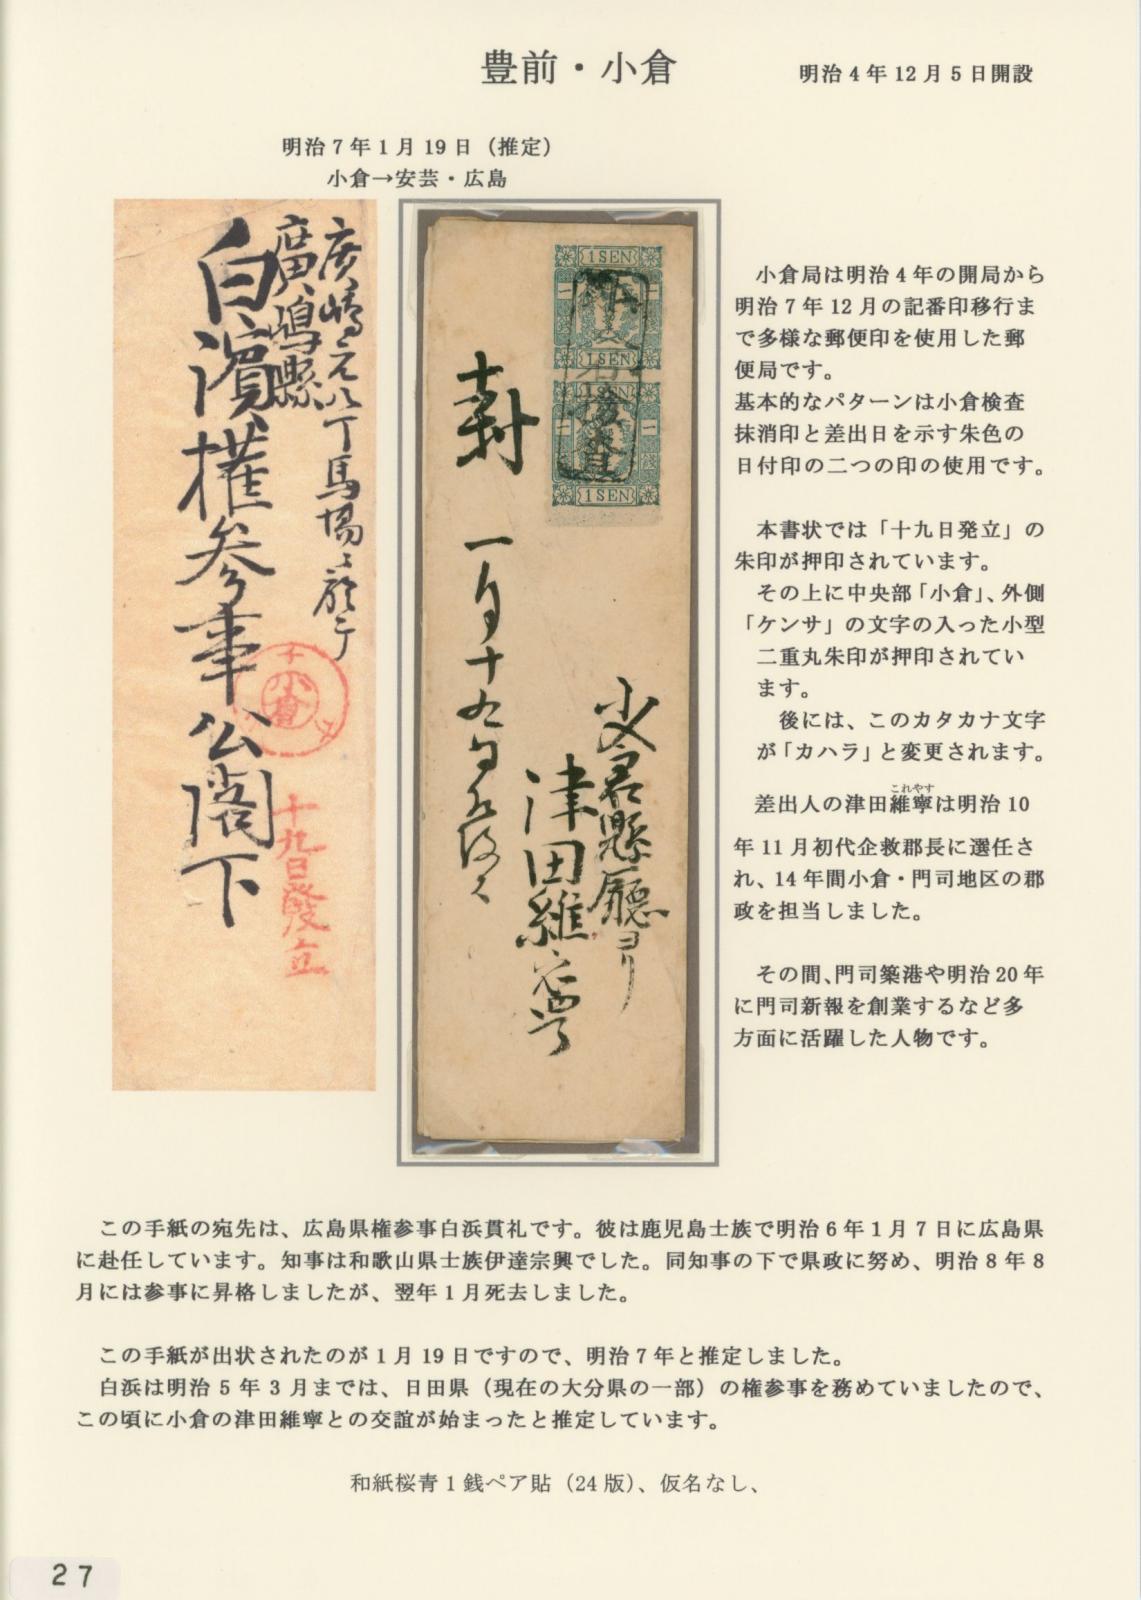 豊前・小倉
明治4年12月5日開設
明治7年1月19日（推定）
小倉→安芸・広島
廣嶋元八丁馬場
廣嶋縣
白濱權参事公閣下
小倉
十九日發立
1 SEN
1 SEN
1 SEN
1 SEN
封
一月十九日
小倉縣廳ヨリ
津田維寧
小倉局は明治4年の開局から
明治7年12月の記番印移行ま
で多様な郵便印を使用した郵
便局です。
基本的なパターンは小倉検査
抹消印と差出日を示す朱色の
日付印の二つの印の使用です。
本書状では「十九日発立」の
朱印が押印されています。
その上に中央部「小倉」、外側
「ケンサ」の文字の入った小型
二重丸朱印が押印されてい
ます。
後には、このカタカナ文字
が「カハラ」と変更されます。
これやす
差出人の津田維寧は明治10
年11月初代企救郡長に選任さ
れ、14年間小倉・門司地区の郡
政を担当しました。
その間、門司築港や明治20年
に門司新報を創業するなど多
方面に活躍した人物です。
この手紙の宛先は、広島県権参事白浜貫礼です。彼は鹿児島士族で明治6年1月7日に広島県
に赴任しています。知事は和歌山県士族伊達宗興でした。同知事の下で県政に努め、明治8年8
月には参事に昇格しましたが、翌年1月死去しました。
この手紙が出状されたのが1月19日ですので、明治7年と推定しました。
白浜は明治5年3月までは、日田県（現在の大分県の一部）の権参事を務めていましたので、
この頃に小倉の津田維寧との交誼が始まったと推定しています。
和紙桜青1銭ペア貼（24版）、仮名なし、
27